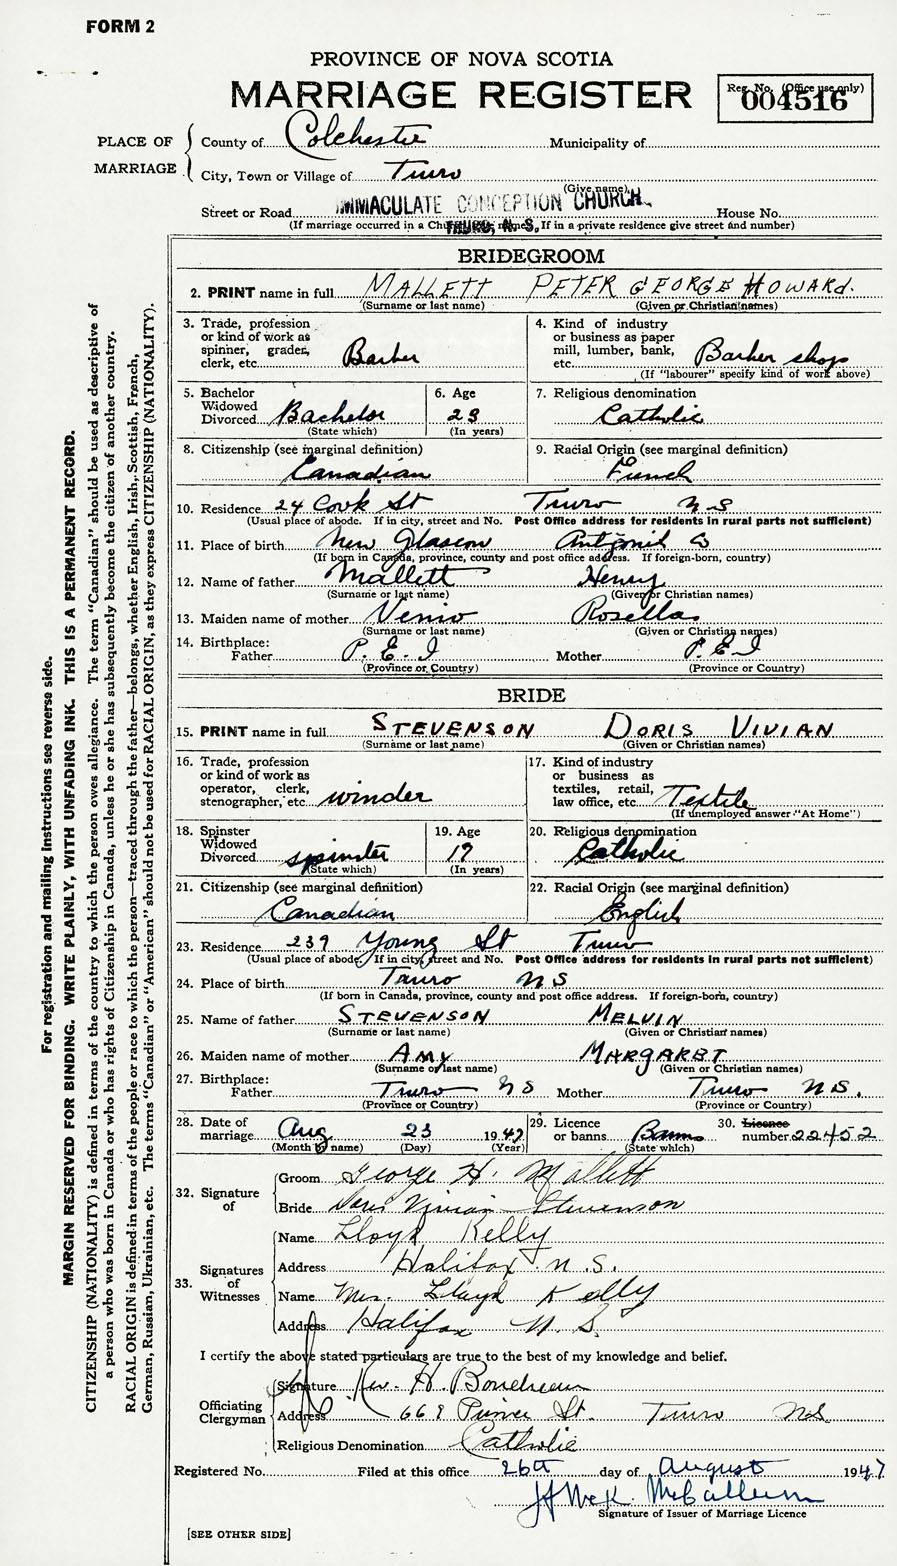 FORM 2
PROVINCE OF NOVA SCOTIA
MARRIAGE REGISTER
Reg. No. (Office use only)
004516
PLACE OF MARRIAGE
County of Colchester Municipality of
City, Town or Village of Truro
(Give name)
Street or Road IMMACULATE CONCEPTION CHURCH House No.
TRURO, N. S.
(If marriage occurred in a Church, give its name. If in a private residence give street and number)
BRIDEGROOM
2. PRINT name in full MALLETT PETER GEORGE HOWARD.
(Surname or last name) (Given or Christian names)
3. Trade, profession or kind of work as spinner, grader, clerk, etc. Barber
4. Kind of industry or business as paper mill, lumber, bank, etc. Barber shop
(If "labourer" specify kind of work above)
5. Bachelor Widowed Divorced Bachelor
(State which)
6. Age 23
(In years)
7. Religious denomination
Catholic
8. Citizenship (see marginal definition)
Canadian
9. Racial Origin (see marginal definition)
French
10. Residence 24 Cook St Truro N S
(Usual place of abode. If in city, street and No. Post Office address for residents in rural parts not sufficient)
11. Place of birth New Glasgow
(If born in Canada, province, county and post office address. If foreign-born, country)
12. Name of father Mallett Henry
(Surname or last name) (Given or Christian names)
13. Maiden name of mother Rosella
(Surname or last name) (Given or Christian names)
14. Birthplace:
Father P. E. I Mother P. E I
(Province or Country) (Province or Country)
BRIDE
15. PRINT name in full STEVENSON DORIS VIVIAN
(Surname or last name) (Given or Christian names)
16. Trade, profession or kind of work as operator, clerk, stenographer, etc. winder
17. Kind of industry or business as textiles, retail, law office, etc. Textile
(If unemployed answer "At Home")
18. Spinster Widowed Divorced spinster
(State which)
19. Age 19
(In years)
20. Religious denomination
Catholic
21. Citizenship (see marginal definition)
Canadian
22. Racial Origin (see marginal definition)
English
23. Residence 239 Young St Truro
(Usual place of abode. If in city, street and No. Post Office address for residents in rural parts not sufficient)
24. Place of birth Truro N S
(If born in Canada, province, county and post office address. If foreign-born, country)
25. Name of father STEVENSON MELVIN
(Surname or last name) (Given or Christian names)
26. Maiden name of mother AMY MARGARET
(Surname or last name) (Given or Christian names)
27. Birthplace:
Father Truro N S Mother Truro N S.
(Province or Country) (Province or Country)
28. Date of marriage Aug 23 1947
(Month by name) (Day) (Year)
29. Licence or banns Banns
(State which)
30. Licence number 22452
32. Signature of
Groom George H. Mallett
Bride Doris Vivian Stevenson
33. Signatures of Witnesses
Name Lloyd Kelly
Address Halifax N.S.
Name Mrs. Lloyd Kelly
Address Halifax N. S.
I certify the above stated particulars are true to the best of my knowledge and belief.
Officiating Clergyman
Signature Rev. H. Boudreau
Address 668 St. Truro N.S.
Religious Denomination Catholic
Registered No. Filed at this office 26th day of August 1947
McCallum
Signature of Issuer of Marriage Licence
[SEE OTHER SIDE]
For registration and mailing instructions see reverse side.
MARGIN RESERVED FOR BINDING. WRITE PLAINLY, WITH UNFADING INK. THIS IS A PERMANENT RECORD.
CITIZENSHIP (NATIONALITY) is defined in terms of the country to which the person owes allegiance. The term "Canadian" should be used as descriptive of
a person who was born in Canada or who has rights of Citizenship in Canada, unless he or she has subsequently become the citizen of another country.
RACIAL ORIGIN is defined in terms of the people or race to which the person—traced through the father—belongs, whether English, Irish, Scottish, French,
German, Russian, Ukrainian, etc. The terms "Canadian" or "American" should not be used for RACIAL ORIGIN, as they express CITIZENSHIP (NATIONALITY).